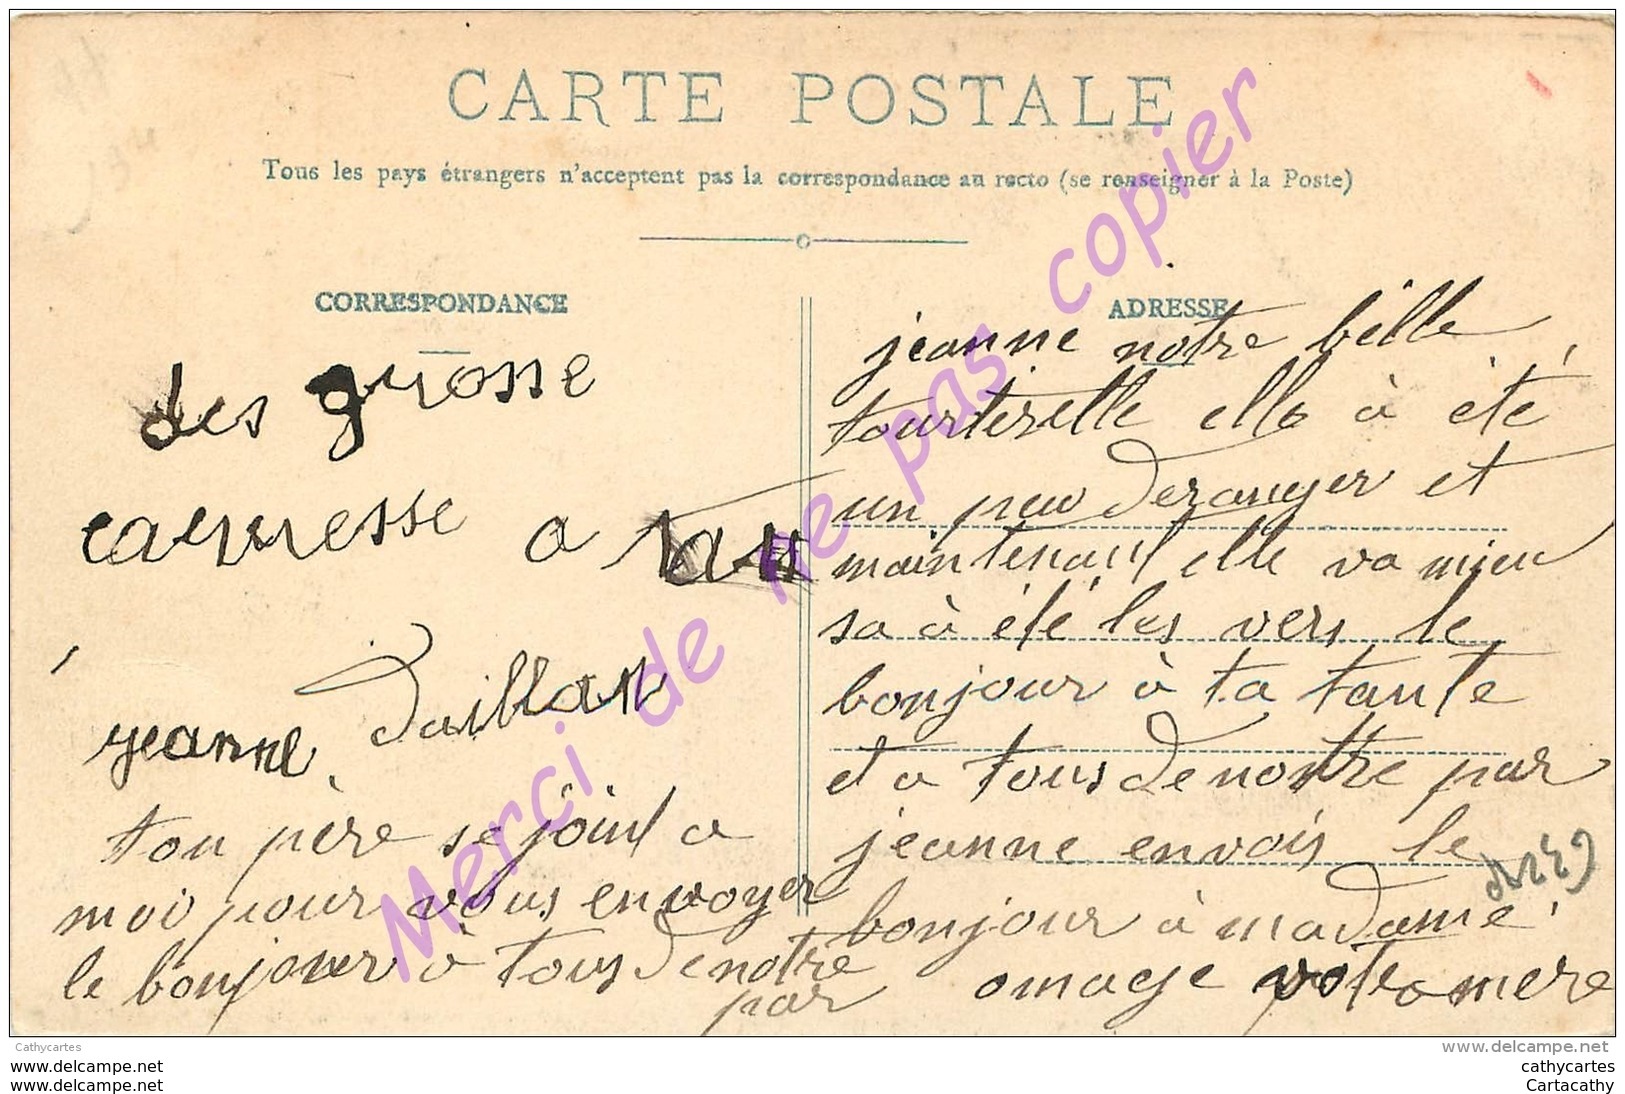 CARTE POSTALE
Tous les pays étrangers n'acceptent pas la correspondance au recto (se renseigner à la Poste)
CORRESPONDANCE
des grosse
carresse a tous
jeanne Daillan
ton père se joint a
moi pour vous envoyer
le bonjour à tous de notre
par
ADRESSE
jeanne notre bélle
tourterelle elle à été
un peu déranger et
maintenant elle va mieu
sa à été les vers le
bonjour à ta tante
et a tous de nostre par
jeanne envois le
bonjour à madame
omage votre mere
Merci de ne pas copier
Cathycartes
www.delcampe.net
www.delcampe.net
www.delcampe.net
cathycartes
Cartacathy